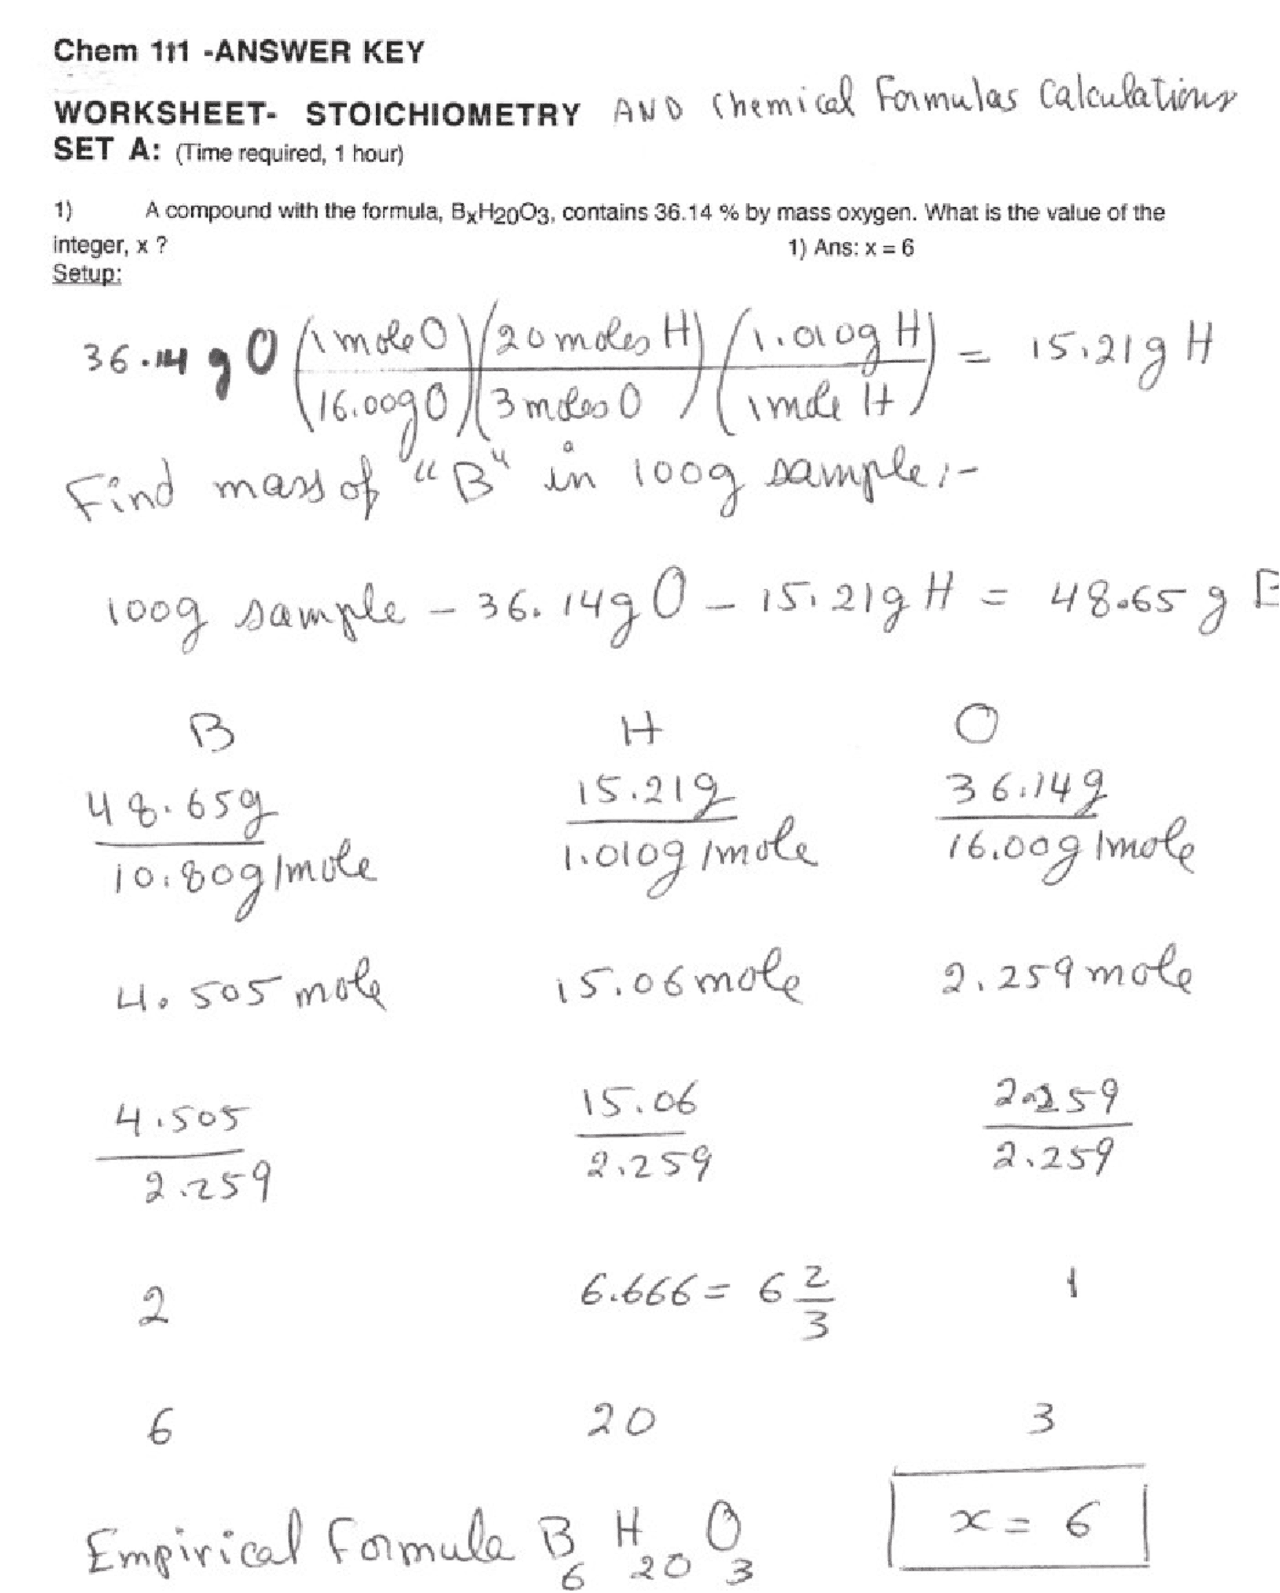 Chem 111 -ANSWER KEY
WORKSHEET- STOICHIOMETRY AND Chemical Formulas Calculations
SET A: (Time required, 1 hour)
1) A compound with the formula, BxH20O3, contains 36.14 % by mass oxygen. What is the value of the
integer, x ? 1) Ans: x = 6
Setup:
36.14 g O (1 mole O / 16.00g O) (20 moles H / 3 moles O) (1.010g H / 1 mole H) = 15.21g H
Find mass of "B" in 100g sample:-
100g sample - 36.14g O - 15.21g H = 48.65 g B
B H O
48.65g 15.21g 36.14g
10.80g/mole 1.010g/mole 16.00g/mole
4.505 mole 15.06 mole 2.259 mole
4.505 15.06 2.259
2.259 2.259 2.259
2 6.666 = 6 2/3 1
6 20 3
Empirical Formula B6 H20 O3 x = 6